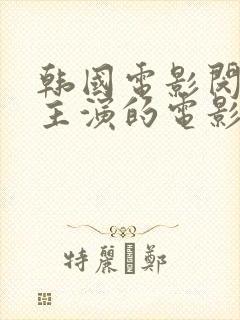 韩國電影閔
主演的電影
特麗鄭